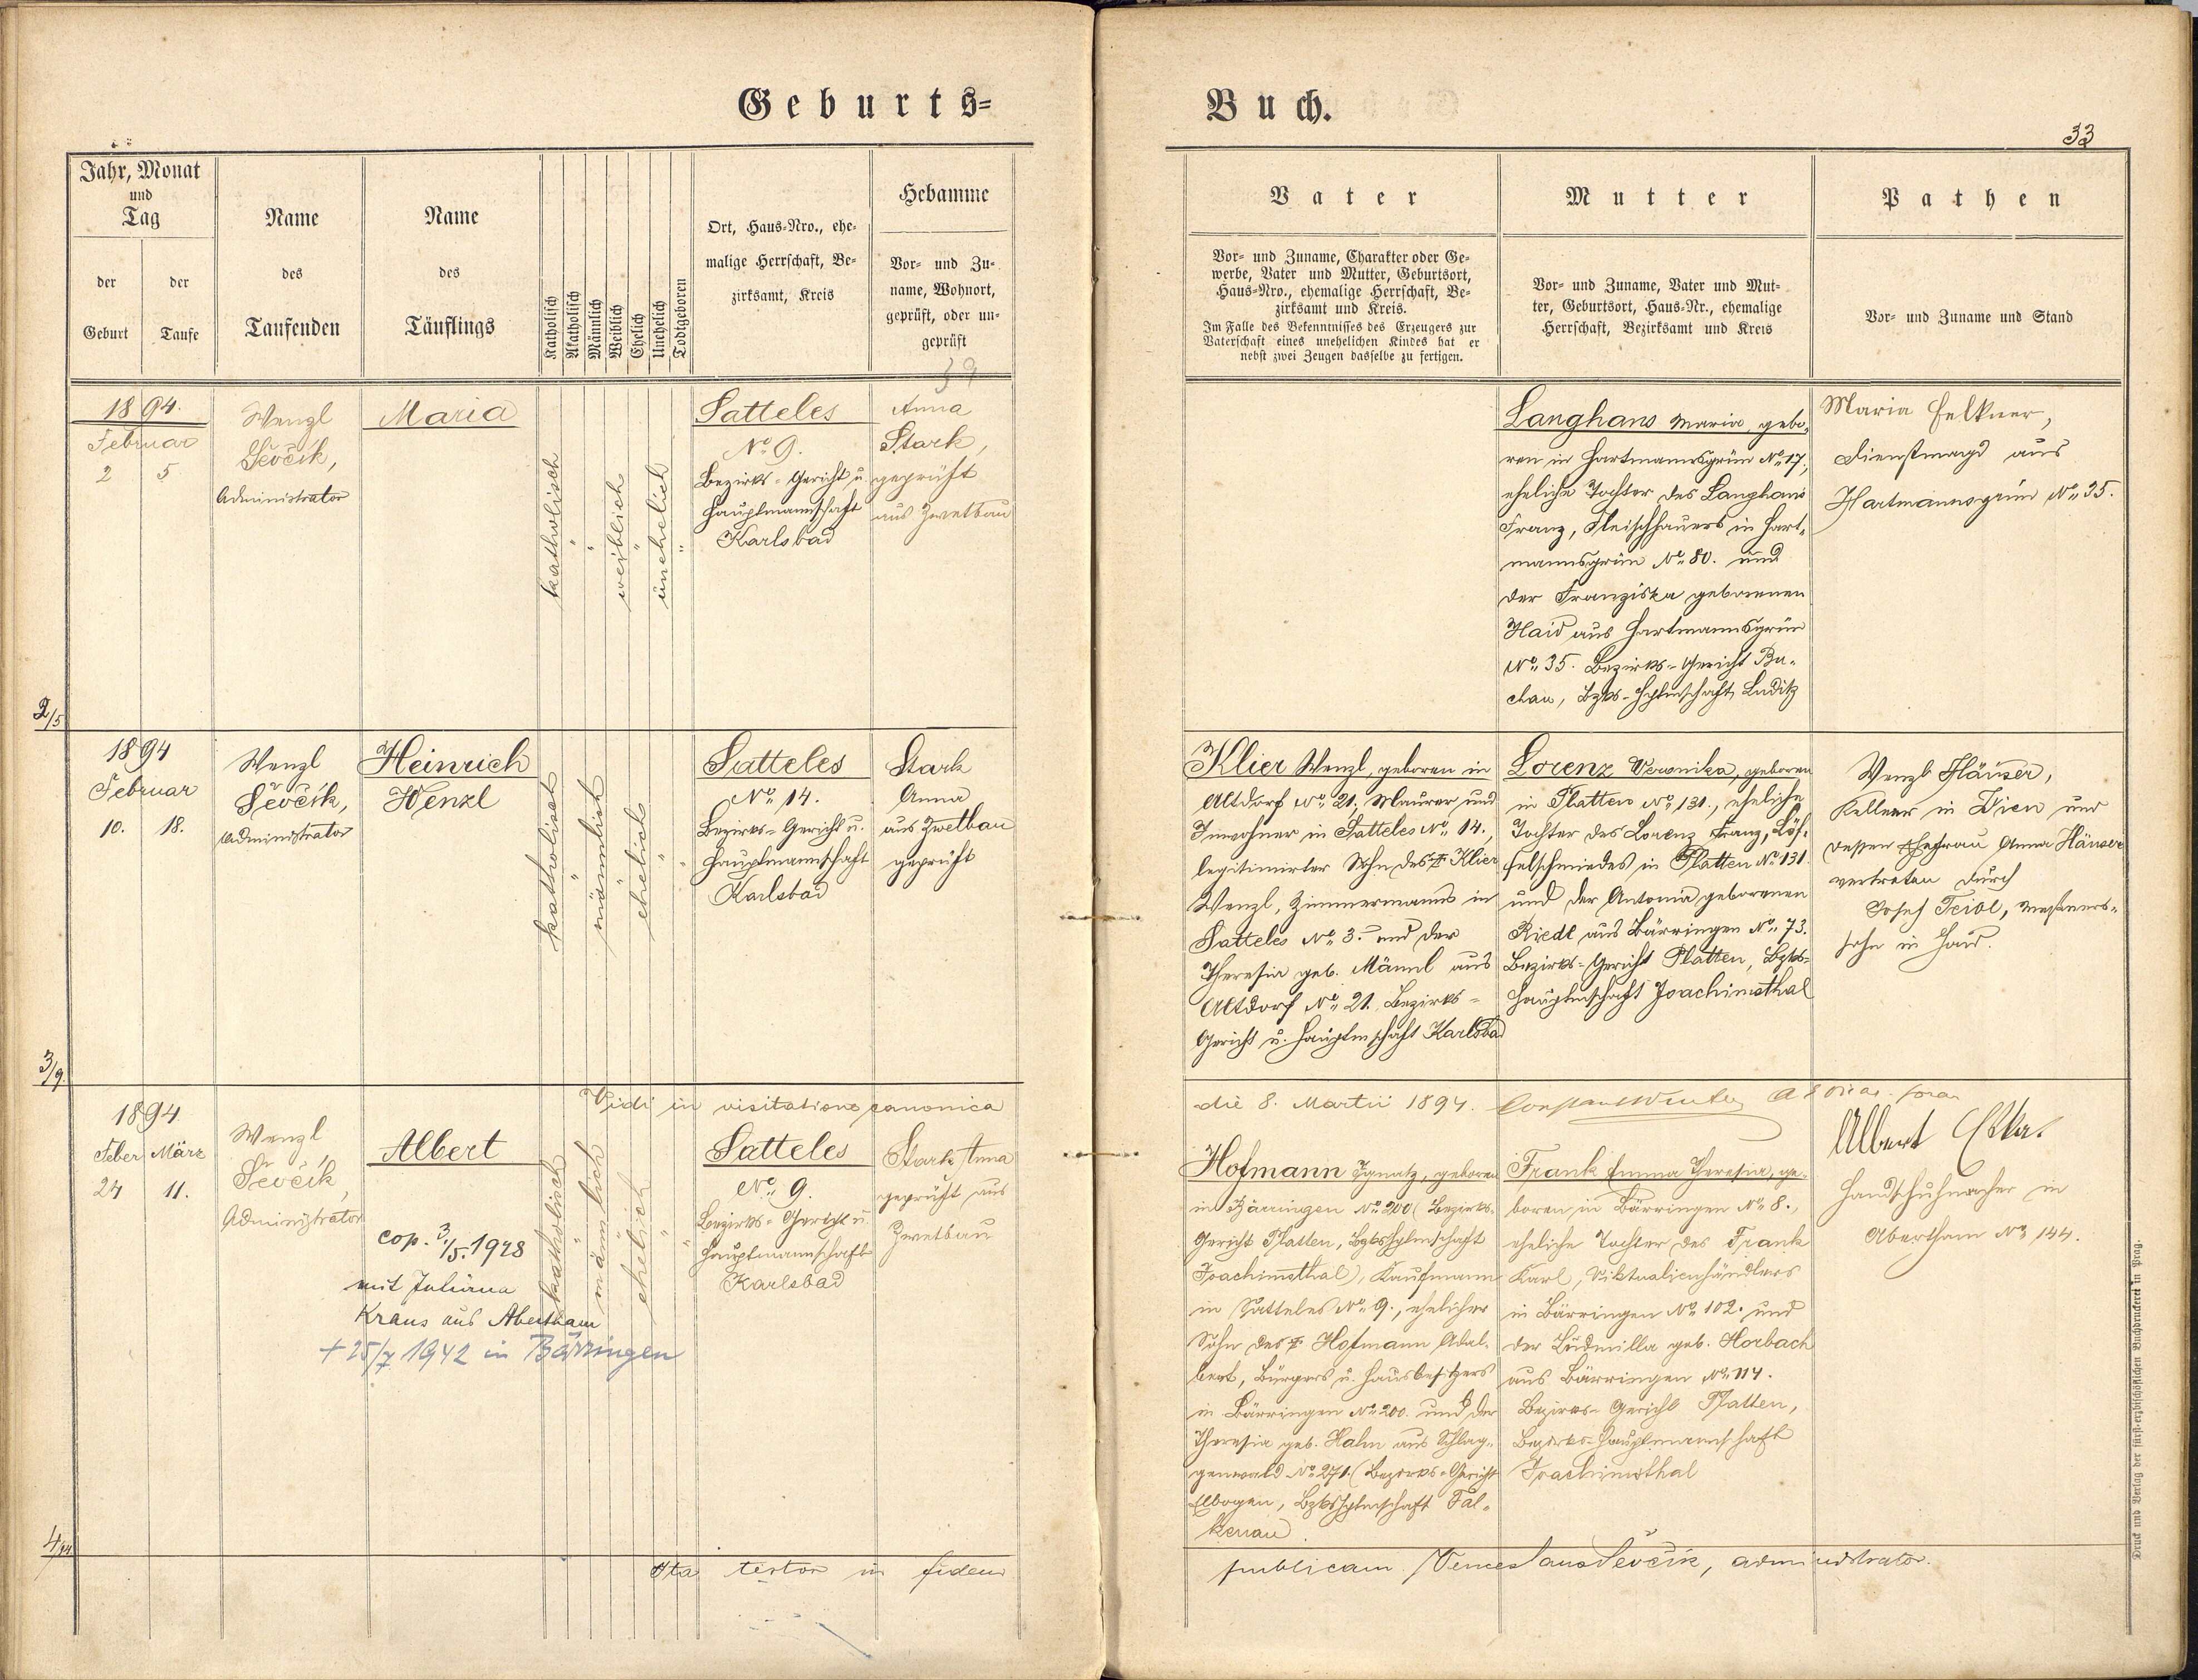 Geburts=
Buch.
33
Jahr, Monat
und
Tag
der
Geburt
der
Taufe
Name
des
Taufenden
Name
des
Täuflings
Katholisch
Akatholisch
Männlich
Weiblich
Ehelich
Unehelich
Todtgeboren
Ort, Haus-Nro., ehe-
malige Herrschaft, Be-
zirksamt, Kreis
Hebamme
Vor- und Zu-
name, Wohnort,
geprüft, oder un-
geprüft
Vater
Vor- und Zuname, Charakter oder Ge-
werbe, Vater und Mutter, Geburtsort,
Haus-Nro., ehemalige Herrschaft, Be-
zirksamt und Kreis.
Im Falle des Bekenntnisses des Erzeugers zur
Vaterschaft eines unehelichen Kindes hat er
nebst zwei Zeugen dasselbe zu fertigen.
Mutter
Vor- und Zuname, Vater und Mut-
ter, Geburtsort, Haus-Nr., ehemalige
Herrschaft, Bezirksamt und Kreis
Pathen
Vor- und Zuname und Stand
2/5
1894.
Februar
2 5
Wenzl
Ševčík,
Administrator
Maria
katholisch
"
"
weiblich
"
unehelich
"
Satteles
No. 9.
Bezirks-Gericht u.
Hauptmannschaft
Karlsbad
Anna
Stark,
geprüft
aus Zwetbau
Langhans Maria, gebo-
ren in Hartmannsgrün No. 17,
eheliche Tochter des Langhans
Franz, Fleischhauers in Hart-
mannsgrün No. 80. und
der Franziska geborenen
Haid aus Hartmannsgrün
No. 35. Bezirks-Gericht Bu-
chau, Bzks-Hptmschaft Luditz
Maria Felkner,
Dienstmagd aus
Hartmannsgrün No. 35.
3/9.
1894
Februar
10. 18.
Wenzl
Ševčík,
Administrator
Heinrich
Wenzl
katholisch
"
männlich
"
ehelich
"
"
Satteles
No. 14.
Bezirks-Gericht u.
Hauptmannschaft
Karlsbad
Stark
Anna
aus Zwetbau
geprüft
Klier Wenzl, geboren in
Altdorf No. 21, Maurer und
Inwohner in Satteles No. 14.,
legitimirter Sohn des † Klier
Wenzl, Zimmermanns in
Satteles No. 3. und der
Theresia geb. Männl aus
Altdorf No. 21. Bezirks-
Gericht u. Hauptmschaft Karlsbad
Lorenz Veronika, geboren
in Platten No. 131., eheliche
Tochter des Lorenz Franz, Löf-
felschmiedes in Platten No. 131
und der Antonia geborenen
Riedl aus Bärringen No. 73.
Bezirks-Gericht Platten, Bzks-
Hauptmschaft Joachimsthal
Wenzl Häuser,
Kellner in Wien und
dessen Ehefrau Anna Häuser
vertreten durch
Josef Teibl,
sohn in
Vidi in visitatione canonica
die 8. Martii 1894.
4/14
1894
Feber März
24 11.
Wenzl
Ševčík,
Administrator
Albert
cop. 3./5. 1928
mit Juliana
Kraus aus Abertham
+ 25/7 1942 in Bärringen
katholisch
"
männlich
"
ehelich
"
"
Satteles
No. 9.
Bezirks-Gericht u.
Hauptmannschaft
Karlsbad
Stark Anna
geprüft aus
Zwetbau
Hofmann Ignatz, geboren
in Bärringen No. 200 (Bezirks-
Gericht Platten, Bzkshptmschaft
Joachimsthal), Kaufmann
in Satteles No. 9., ehelicher
Sohn des † Hofmann Adal-
bert, Bürgers u. Hausbesitzers
in Bärringen No. 200. und der
Theresia geb. Hahn aus Schlag-
genwald No. 271. (Bezirks-Gericht
Elbogen, Bzkshptmschaft Fal-
kenau)
Frank Emma Theresia, ge-
boren in Bärringen No. 8.,
eheliche Tochter des Frank
Karl, Viktualienhändlers
in Bärringen No. 102. und
der Ludmilla geb. Horbach
aus Bärringen No. 114.
Bezirks-Gericht Platten,
Bezirks-Hauptmannschaft
Joachimsthal
Albert
Handschuhmacher in
Abertham No. 144.
Ita testor in fidem
publicam Venceslaus Ševčík, administrator.
Druck und Verlag der fürst-erzbischöflichen Buchdruckerei in Prag.